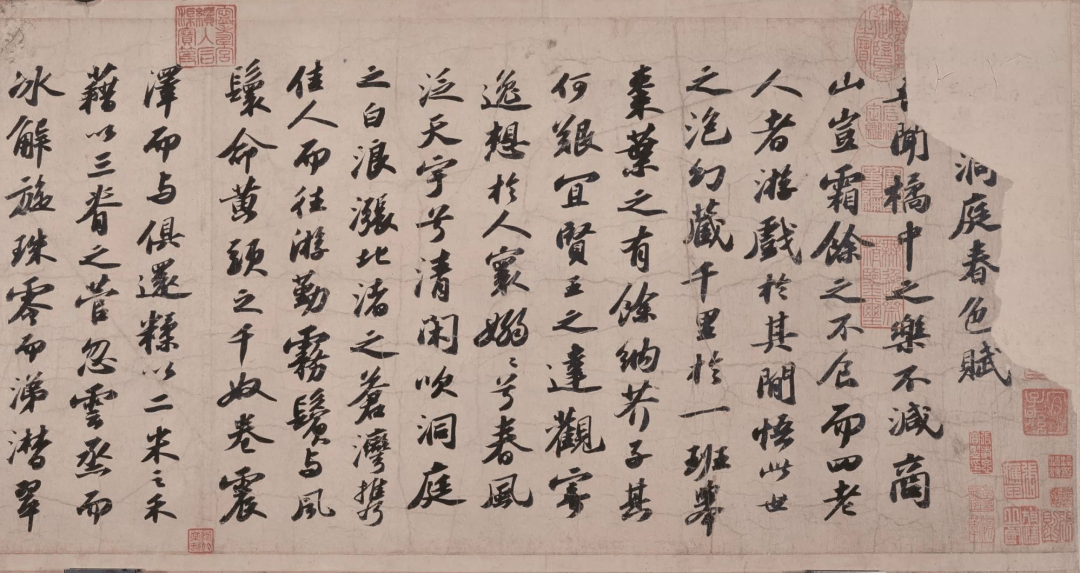 洞庭春色賦
聞橘中之樂不減商
山豈霜餘之不食而四老
人者游戲於其間悟此世
之泡幻藏千里於一班舉
棗葉之有餘納芥子其
何艱宜賢王之達觀寄
逸想於人寰嫋〻兮春風
泛天宇兮清閑吹洞庭
之白浪漲北渚之蒼灣攜
佳人而往游勤霧鬢与風
鬟命黃頭之千奴卷震
澤而与俱還糅以二米之禾
藉以三脊之菅忽雲烝而
冰解旋珠零而涕潸翠